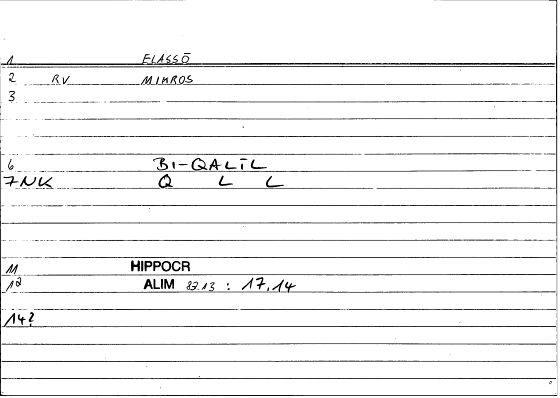 1 ELASSŌ
2 RV MIKROS
3
6 BI-QALĪL
7 NK Q L L
11 HIPPOCR
12 ALIM 83.13 : 17,14
14?